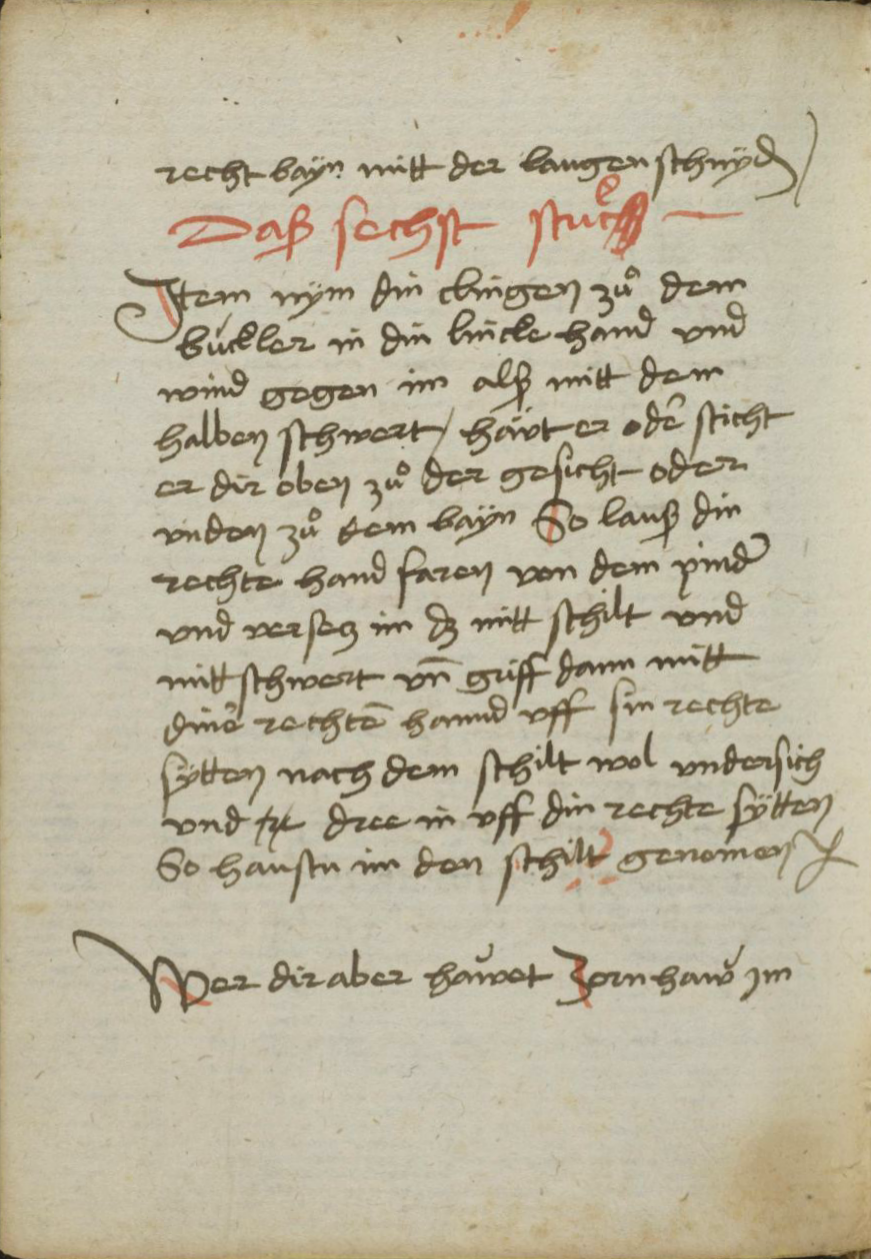 recht bayn mitt der langen schnÿd
Daß sechst stuck
Item nÿm din clingen zuͦ dem
buckler in din lincke hand vnd
wind gegen im alß mitt dem
halben schwert / häwt er odeʳ sticht
er dir oben zuͦ der gesicht oder
vnden zuͦ dem baÿn So lauß din
rechte hand faren von dem pindeʳ
vnd versetz im dz mitt schilt vnd
mitt schwert vn̄ griff dann mitt
dineʳ rechtē hannd vff sin rechte
sÿtten nach dem schilt wol vndersich
vnd dree in vff din rechte sÿtten
So haustu im den schilt genomen
Wer dir aber hawet Zornhaw im